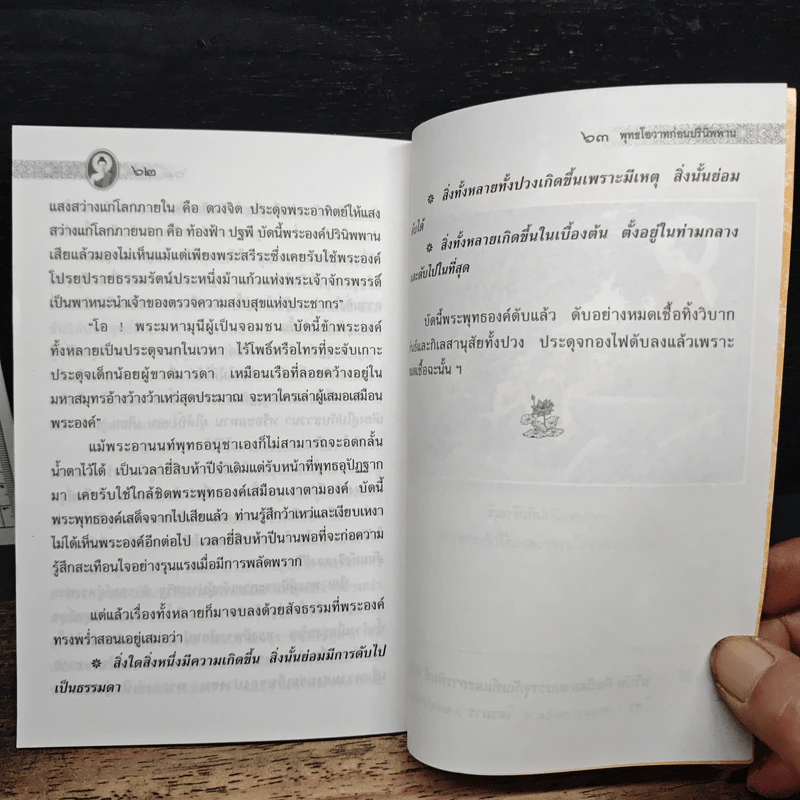 ๖๒
แสงสว่างแก่โลกภายใน คือ ดวงจิต ประดุจพระอาทิตย์ให้แสง
สว่างแก่โลกภายนอก คือ ท้องฟ้า ปฐพี บัดนี้พระองค์ปรินิพพาน
เสียแล้วมองไม่เห็นแม้แต่เพียงพระสรีระซึ่งเคยรับใช้พระองค์
โปรยปรายธรรมรัตน์ประหนึ่งม้าแก้วแห่งพระเจ้าจักรพรรดิ์
เป็นพาหนะนำเจ้าของตรวจความสงบสุขแห่งประชากร"
"โอ ! พระมหามุนีผู้เป็นจอมชน บัดนี้ข้าพระองค์
ทั้งหลายเป็นประดุจนกในเวหา ไร้โพธิ์หรือไทรที่จะจับเกาะ
ประดุจเด็กน้อยผู้ขาดมารดา เหมือนเรือที่ลอยคว้างอยู่ใน
มหาสมุทรอ้างว้างว้าเหว่สุดประมาณ จะหาใครเล่าผู้เสมอเสมือน
พระองค์"
แม้พระอานนท์พุทธอนุชาเองก็ไม่สามารถจะอดกลั้น
น้ำตาไว้ได้ เป็นเวลายี่สิบห้าปีจำเดิมแต่รับหน้าที่พุทธอุปัฏฐาก
มา เคยรับใช้ใกล้ชิดพระพุทธองค์เสมือนเงาตามองค์ บัดนี้
พระพุทธองค์เสด็จจากไปเสียแล้ว ท่านรู้สึกว้าเหว่และเงียบเหงา
ไม่ได้เห็นพระองค์อีกต่อไป เวลายี่สิบห้าปีนานพอที่จะก่อความ
รู้สึกสะเทือนใจอย่างรุนแรงเมื่อมีการพลัดพราก
แต่แล้วเรื่องทั้งหลายก็มาจบลงด้วยสัจธรรมที่พระองค์
ทรงพร่ำสอนเอยู่เสมอว่า
❊ สิ่งใดสิ่งหนึ่งมีความเกิดขึ้น สิ่งนั้นย่อมมีการดับไป
เป็นธรรมดา
๖๓ พุทธโอวาทก่อนปรินิพพาน
❊ สิ่งทั้งหลายทั้งปวงเกิดขึ้นเพราะมีเหตุ สิ่งนั้นย่อม
ดับได้
❊ สิ่งทั้งหลายเกิดขึ้นในเบื้องต้น ตั้งอยู่ในท่ามกลาง
และดับไปในที่สุด
บัดนี้พระพุทธองค์ดับแล้ว ดับอย่างหมดเชื้อทิ้งวิบาก
ขันธ์และกิเลสานุสัยทั้งปวง ประดุจกองไฟดับลงแล้วเพราะ
หมดเชื้อฉะนั้น ฯ